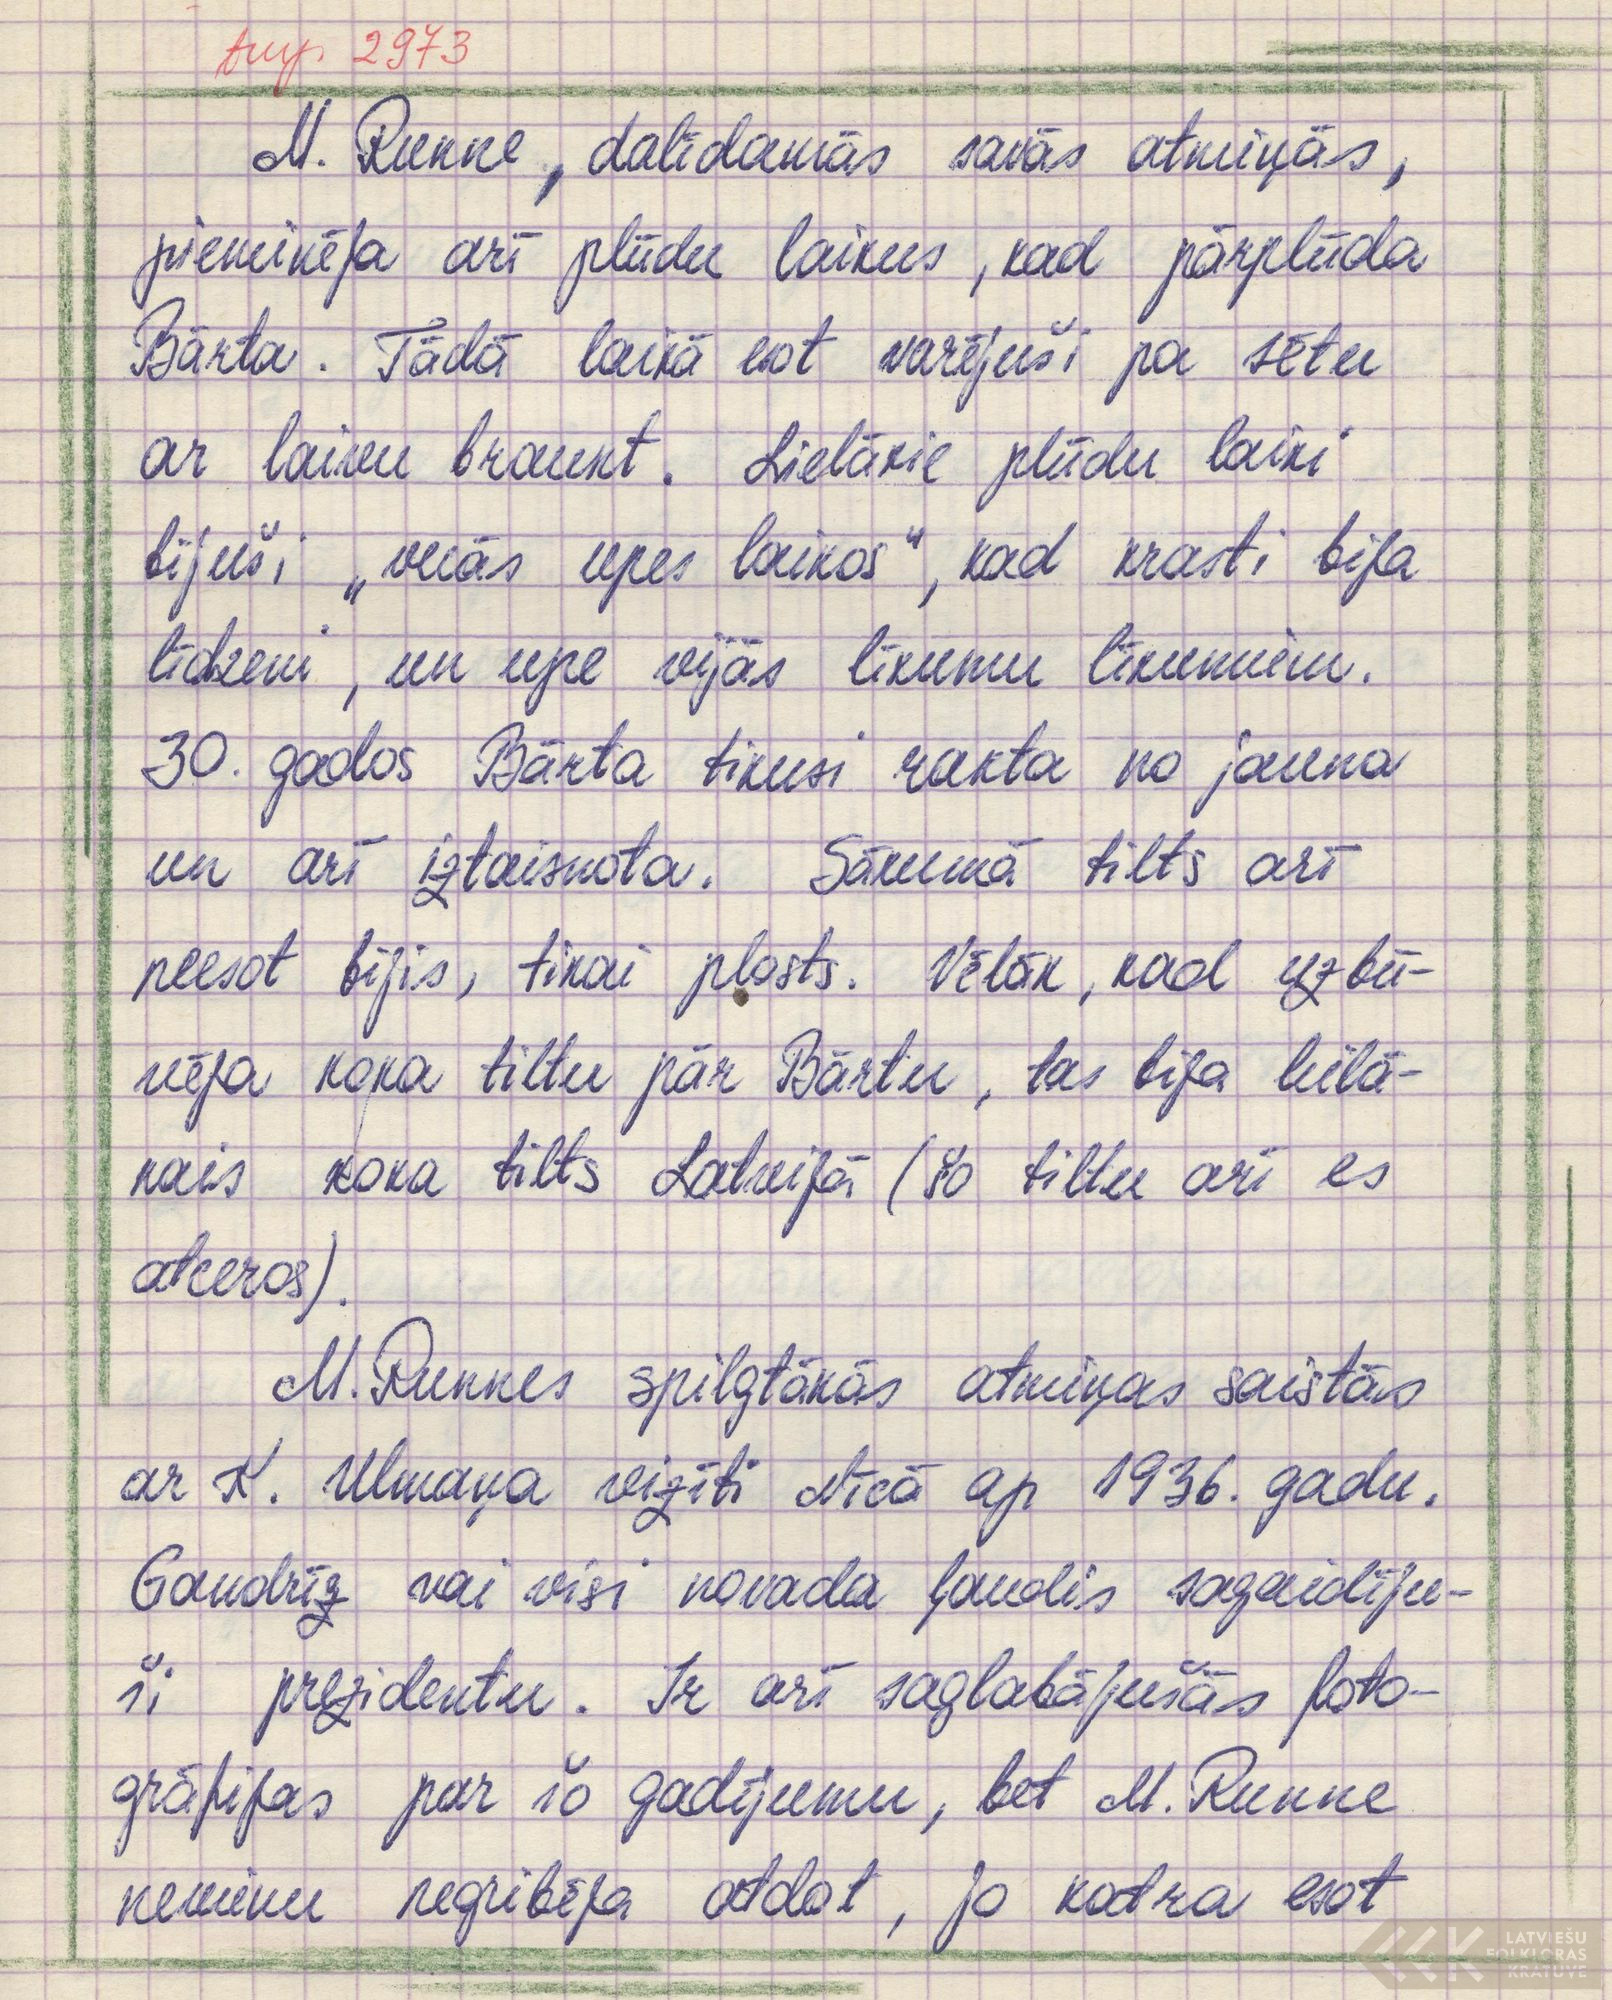 2973
M. Runke, dalīdamās savās atmiņās,
pieminēja arī plūdu laikus, kad pārplūda
Bārta. Tādā laikā esot varējuši pa sētu
ar laivu braukt. Lielākie plūdu laiki
bijuši „vecās upes laikos“, kad krasti bija
līdzeni, un upe vijās līkumu līkumiem.
30. gados Bārta tikusi rakta no jauna
un arī iztaisnota. Sākumā tilts arī
neesot bijis, tikai plosts. Vēlāk, kad uzbū-
vēja koka tiltu pār Bārtu, tas bija lielā-
kais koka tilts Latvijā (šo tiltu arī es
atceros).
M. Runkes spilgtākās atmiņas saistās
ar K. Ulmaņa vizīti Nīcā ap 1936. gadu.
Gandrīz vai visi novada ļaudis sagaidīju-
ši prezidentu. Ir arī saglabājušās foto-
grāfijas par šo gadījumu, bet M. Runke
nevienu negribēja atdot, jo katra esot
LATVIEŠU
FOLKLORAS
KRĀTUVE